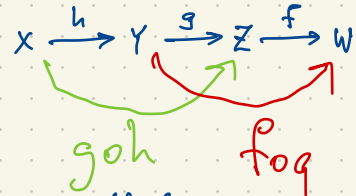 X h→ Y g→ Z f→ W
g∘h f∘g